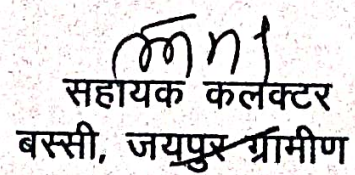 सहायक कलक्टर
बस्सी, जयपुर ग्रामीण